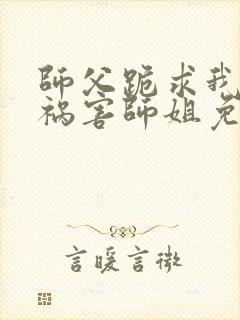 師父跪求我
禍害師姐免
言暖言微